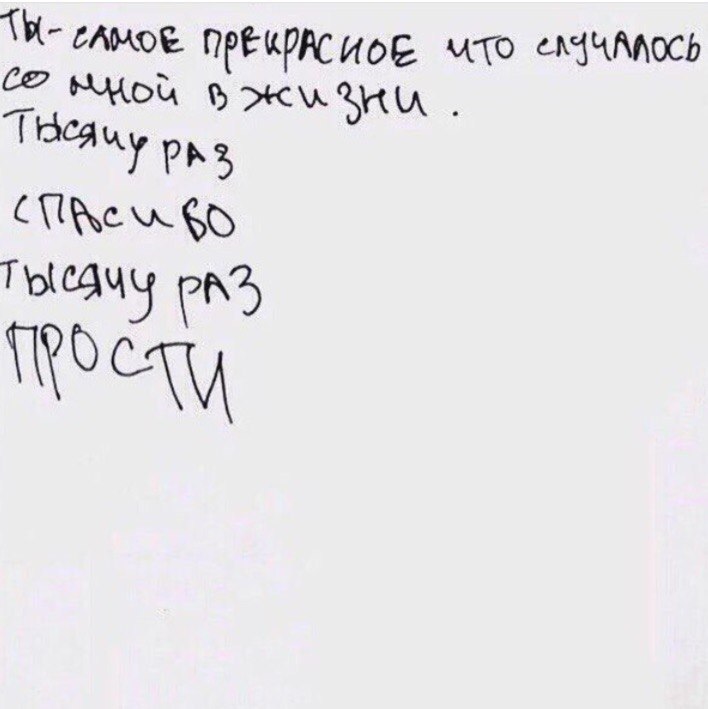 ты- самое прекрасное что случалось
со мной в жизни.
Тысячу раз
спасибо
тысячу раз
прости